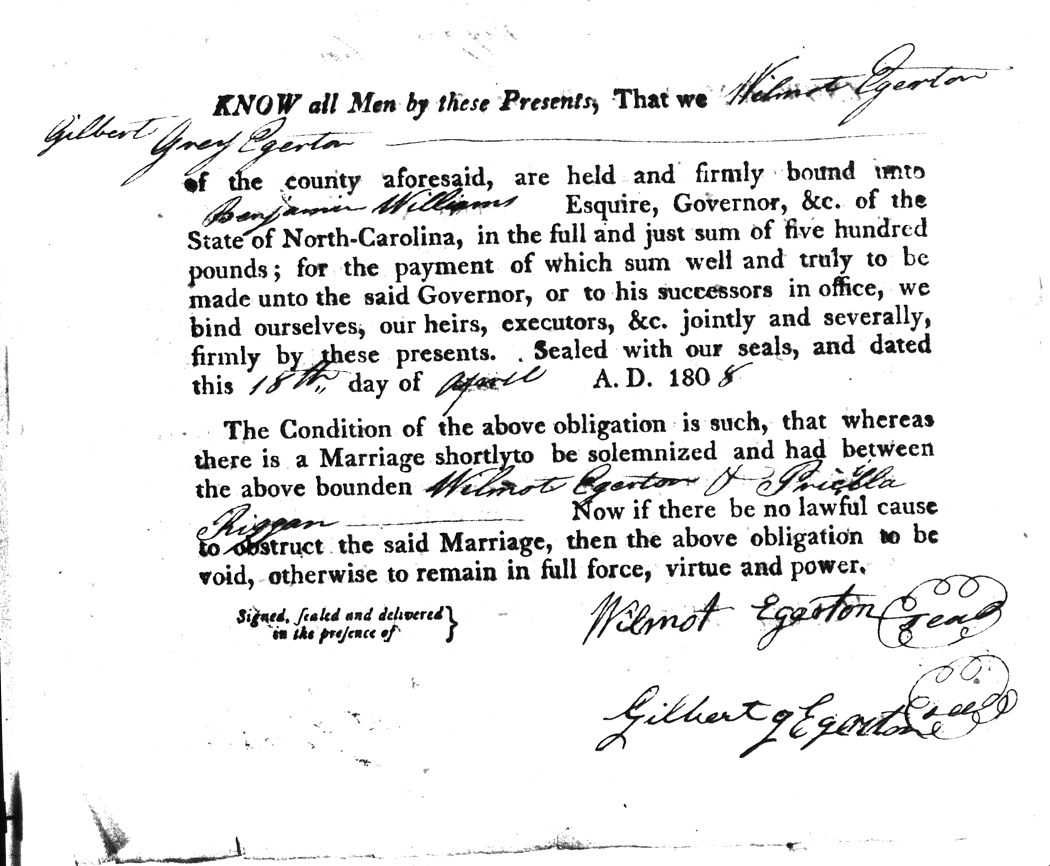 KNOW all Men by these Presents, That we Wilmot Egerton
Gilbert Grey Egerton
of the county aforesaid, are held and firmly bound unto
Benjamin Williams Esquire, Governor, &c. of the
State of North-Carolina, in the full and just sum of five hundred
pounds; for the payment of which sum well and truly to be
made unto the said Governor, or to his successors in office, we
bind ourselves, our heirs, executors, &c. jointly and severally,
firmly by these presents. Sealed with our seals, and dated
this 18th day of April A. D. 1808
The Condition of the above obligation is such, that whereas
there is a Marriage shortly to be solemnized and had between
the above bounden Wilmot Egerton & Pricilla
Riggan Now if there be no lawful cause
to obstruct the said Marriage, then the above obligation to be
void, otherwise to remain in full force, virtue and power.
Signed, sealed and delivered }
in the presence of
Wilmot Egerton Seal
Gilbert G Egerton Seal